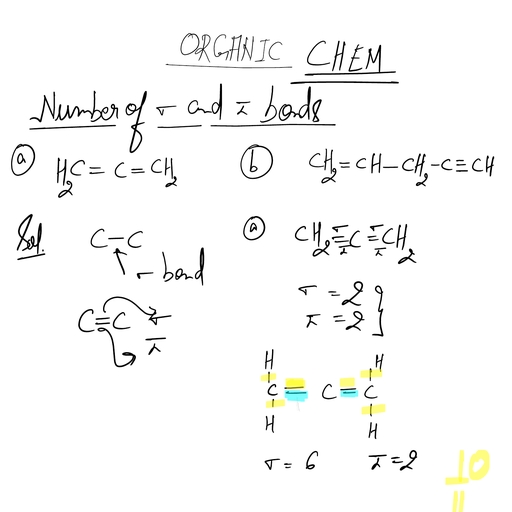 ORGANIC CHEM
Number of σ and π bonds
(a) H₂C = C = CH₂
(b) CH₂ = CH – CH₂ – C ≡ CH
Sol. C – C
σ bond
C = C σ
π
(a) CH₂ = C = CH₂
σ π σ π
σ = 2
π = 2
H H
C = C = C
H H
σ = 6 π = 2